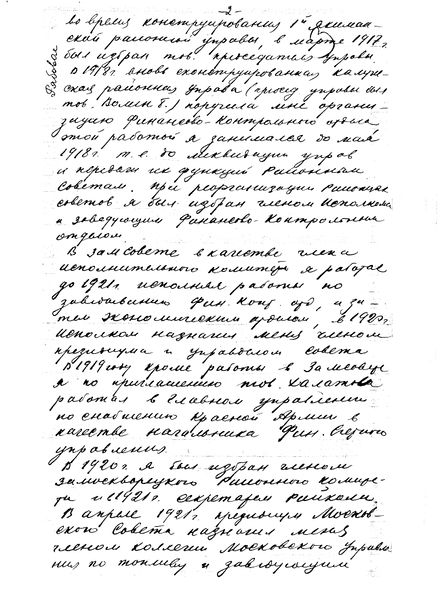 -2-
во время конструирования 1й Якиман-
ской районной управы, в марте 1917г.
был избран тов. председателя управы.
В 1918г. вновь сконструированная Калуж-
ская районная управа (председ. управы был
тов. Волин Б.) поручила мне органи-
зацию Финансово-Контрольного отдела
этой работой я занимался до мая
1918г. т.е. до ликвидации управ
и передачи их функций Районным
Советам. При реорганизации Районных
советов я был избран членом Исполкома
и заведующим Финансово-Контрольным
отделом
В Замсовете в качестве члена
исполнительного комитета я работал
до 1921г. исполняя работы по
заведыванию Фин. Конт. отд, а за-
тем экономическим отделом, в 1920г.
Исполком назначил меня членом
президиума и управделом совета
В 1919 году кроме работы в Замсовете
я по приглашению тов. Халатова
работал в Главном управлении
по снабжению Красной Армии в
качестве начальника Фин. Счетного
управления
В 1920г. я был избран членом
Замоскворецкого Районного комите-
та и с 1921г. секретарем Райкома.
В апреле 1921г. президиум Москов-
ского Совета назначил меня
членом коллегии Московского Управле
ния по топливу и заведующим